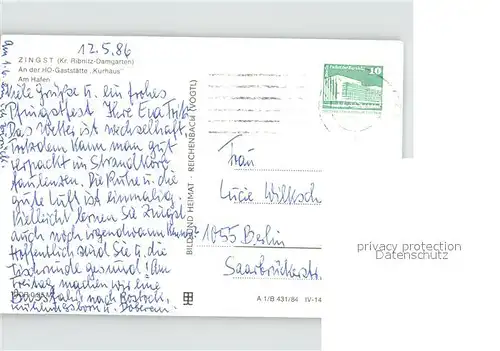 12.5.86
ZINGST (Kr. Ribnitz-Damgarten)
An der HO-Gaststätte „Kurhaus"
Am Hafen
Viele Grüße u. ein frohes
Pfingstfest Ihre Eva
Das Wetter ist wechselhaft
Trotzdem kann man gut
verpackt im Strandkorb
faulenzen. Die Ruhe u. die
gute Luft ist einmalig.
Vielleicht lernen Sie Zingst
auch noch irgendwann kennen
Hoffentlich sind Sie u. die
Tischrunde gesund! Am
Freitag machen wir eine
Busfahrt nach Rostock,
Kühlungsborn u. Doberan.
BILD UND HEIMAT · REICHENBACH (VOGTL)
10
Frau
Lucie
1055 Berlin
Saarbrückerstr.
A 1/B 431/84 IV-14
privacy protection
Datenschutz